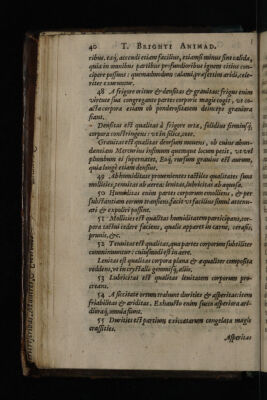 40 T. BRIGHTI ANIMAD.
ribus. eaq, accendi etiam facilius, etiamsi minus sint calida,
quia in omnibus partibus profundioribus ignem citius con-
cipere possunt: quemadmodum calami, præsertim aridi, cele-
riter exuruntur.
48 A frigore oritur & densitas & grauitas: frigus enim
virtute sua congregante partes corporis magis cogit, vt co-
acta corpora etiam ob ponderositatem deinceps grauiora
fiant.
Densitas est qualitas à frigore orta, solidius firmiusq,
corpora constringens: vt in silice, rore.
Grauitas est qualitas deorsum mouens, ob cuius abun-
dantiam Mercurius infimum quemque locum petit, vt vel
plumbum ei supernatet, Eoq, rursum grauius est aurum,
quia longè etiam densius.
49 Ab humiditate prouenientes tactiles qualitates sunt
mollities, tenuitas ab aerea: lenitas, lubricitas ab aquosa.
50 Humiditas enim partes corporum emolliens, & per
substantiam eorum transiens, facit vt facilius simul attenu-
ari & expoliri possint.
51 Mollities est qualitas humiditatem participans, cor-
pora tactui cedere faciens, qualis apparet in carne, cerasis,
prunis, &c.
52 Tenuitas est qualitas, qua partes corporum subtiliter
comminuuntur: cuiusmodi est in aere.
Lenitas est qualitas corpora plana & æqualiter composita
reddens, vt in crystallo, gemmisq, aliis.
53 Lubricitas est qualitas lenitatem corporum pro-
creans.
54 A siccitate ortum trahunt durities & asperitas: item
friabilitas & ariditas. Exhausto enim succo asperiora ari-
dioraq, omnia sunt.
55 Durities est partium exiccatarum congelata magis
crassities.
Asperitas